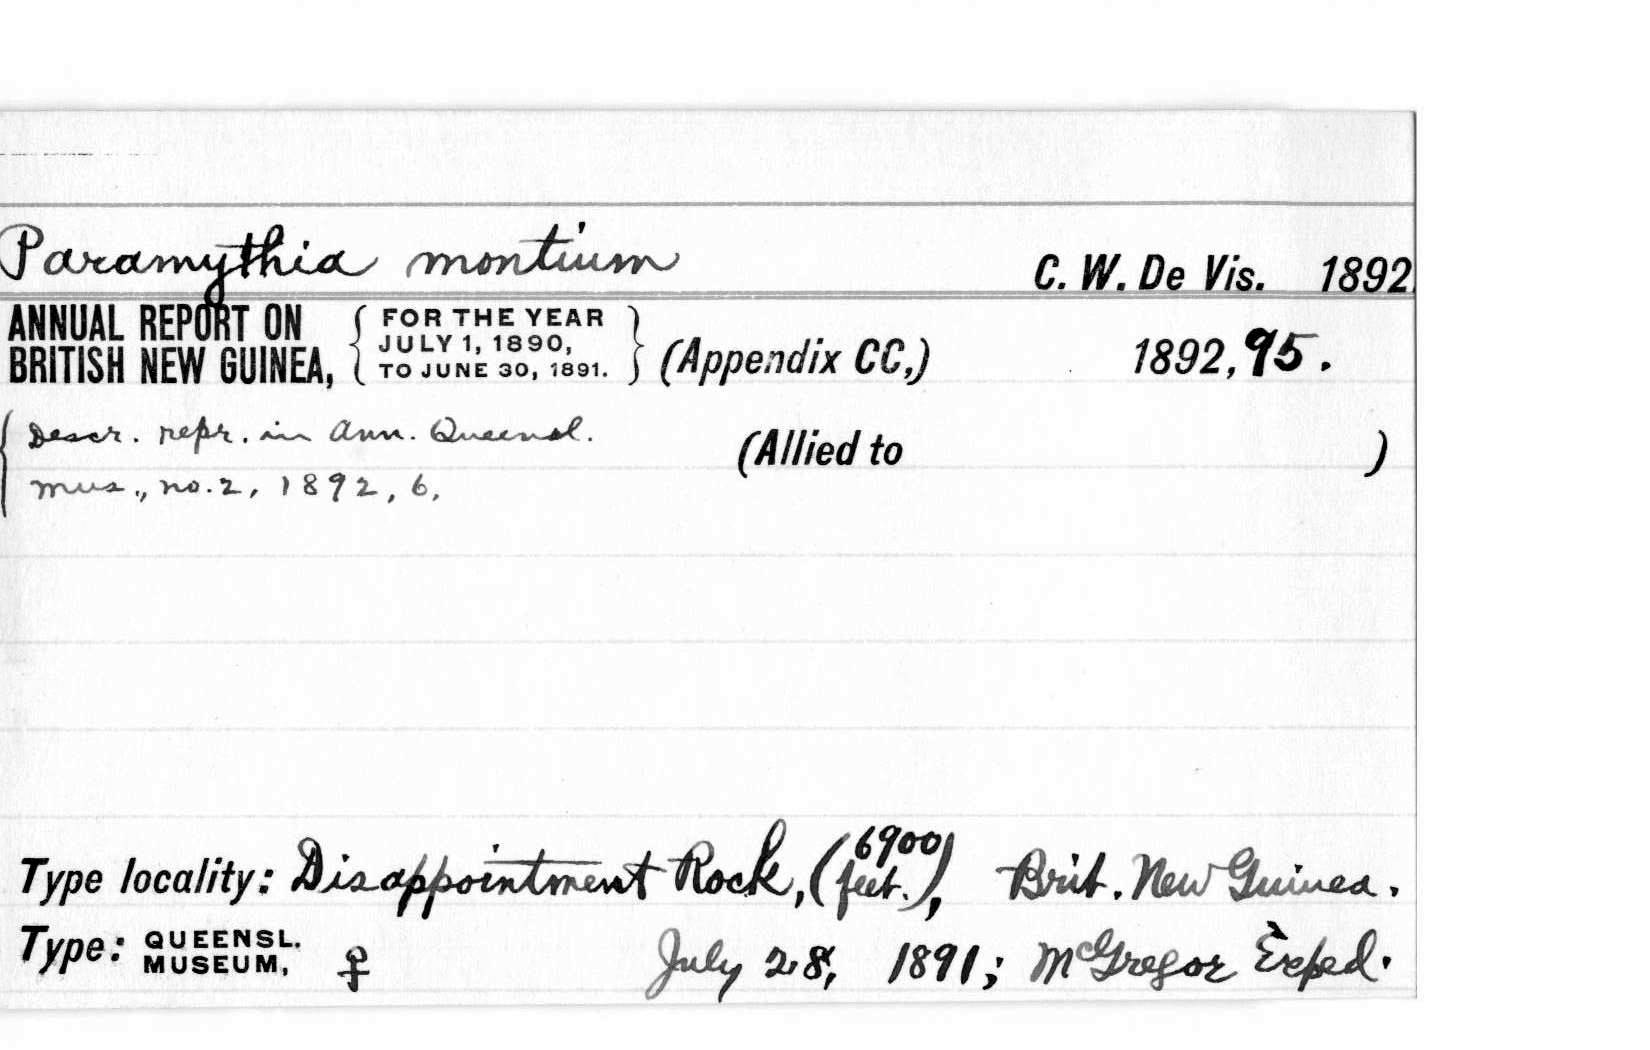 Paramythia montium C. W. De Vis. 1892
ANNUAL REPORT ON BRITISH NEW GUINEA, { FOR THE YEAR JULY 1, 1890, TO JUNE 30, 1891. } (Appendix CC,) 1892, 95.
{ Descr. repr. in Ann. Queensl. (Allied to )
mus., no. 2, 1892, 6.
Type locality: Disappointment Rock, (6900 feet.), Brit. New Guinea.
Type: QUEENSL. MUSEUM, ♀ July 28, 1891; McGregor Exped.